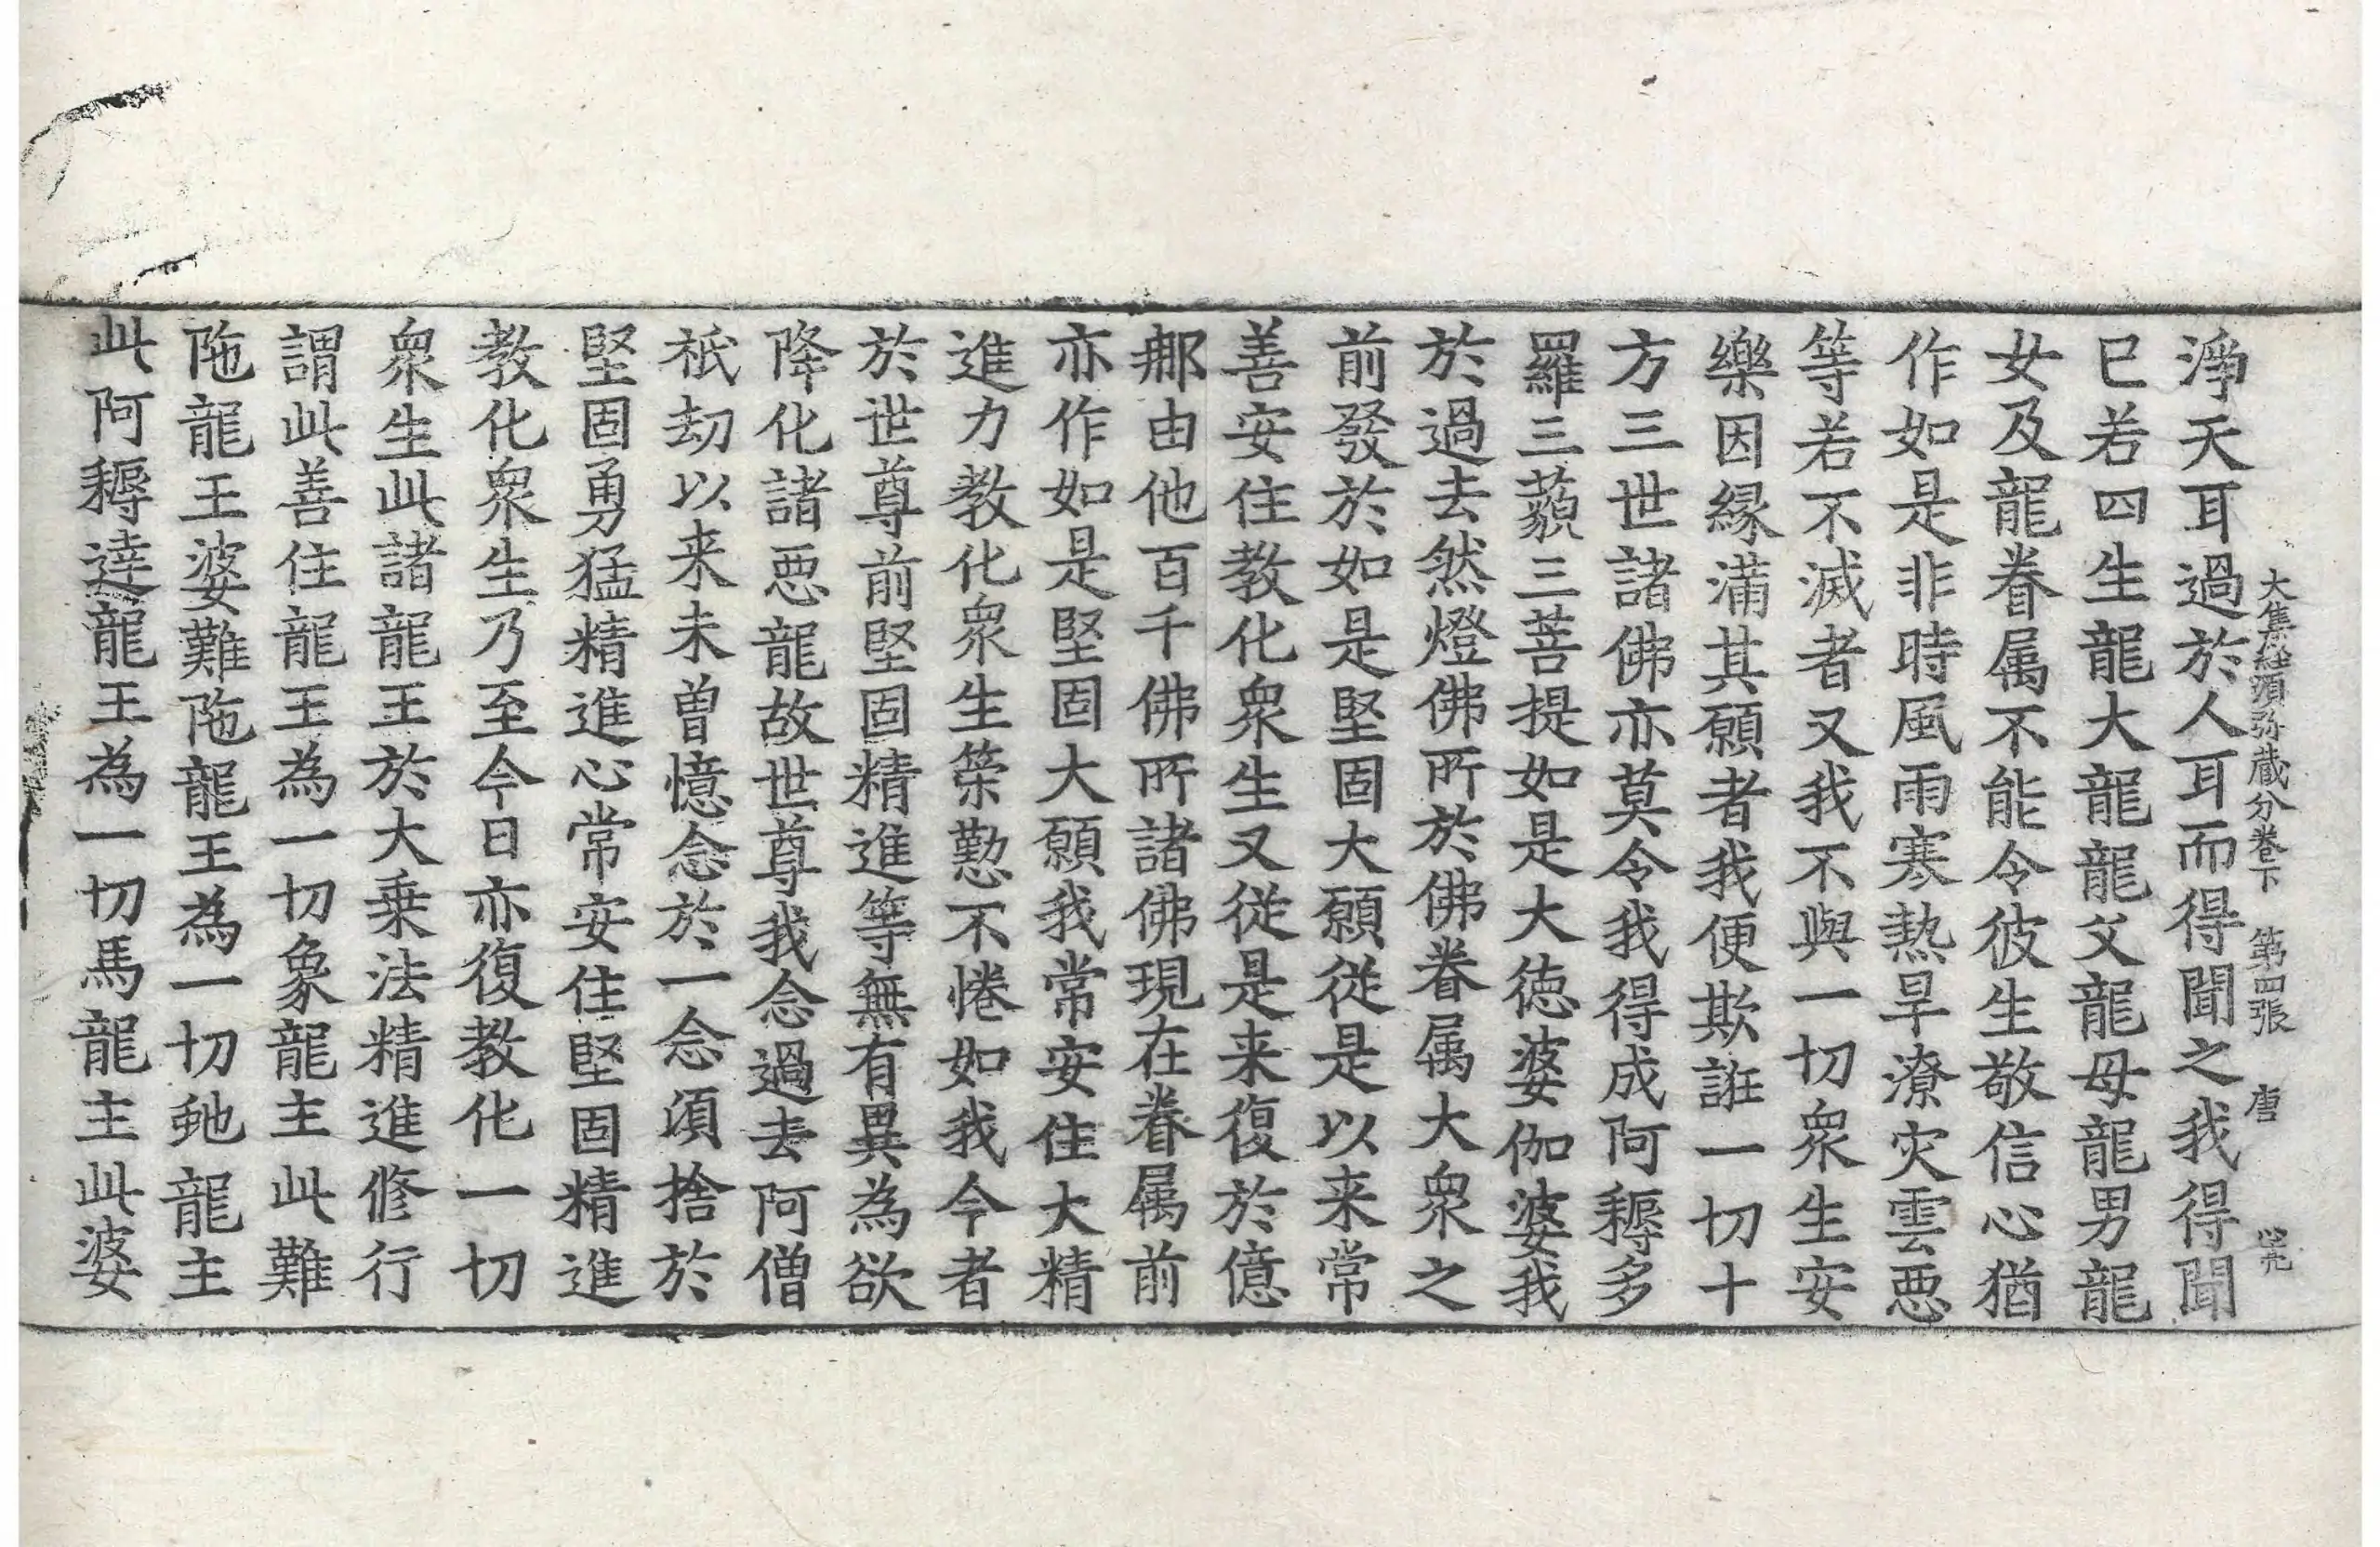 大集經須弥蔵分卷下 第四張 唐
淨天耳過於人耳而得聞之我得聞
已若四生龍大龍龍父龍母龍男龍
女及龍眷属不能令彼生敬信心猶
作如是非時風雨寒熱旱潦灾雲惡
等若不滅者又我不與一切衆生安
樂因縁滿其願者我便欺誑一切十
方三世諸佛亦莫令我得成阿耨多
羅三藐三菩提如是大徳婆伽婆我
於過去然燈佛所於佛眷属大衆之
前發於如是堅固大願從是以来常
善安住教化衆生又從是来復於億
那由他百千佛所諸佛現在眷属前
亦作如是堅固大願我常安住大精
進力教化衆生榮懃不惓如我今者
於世尊前堅固精進等無有異為欲
降化諸惡龍故世尊我念過去阿僧
祇劫以来未曾憶念於一念湏捨於
堅固勇猛精進心常安住堅固精進
教化衆生乃至今日亦復教化一切
衆生此諸龍王於大乗法精進修行
謂此善住龍王為一切象龍主此難
陁龍王婆難陁龍王為一切虵龍主
此阿耨達龍王為一切馬龍主此婆